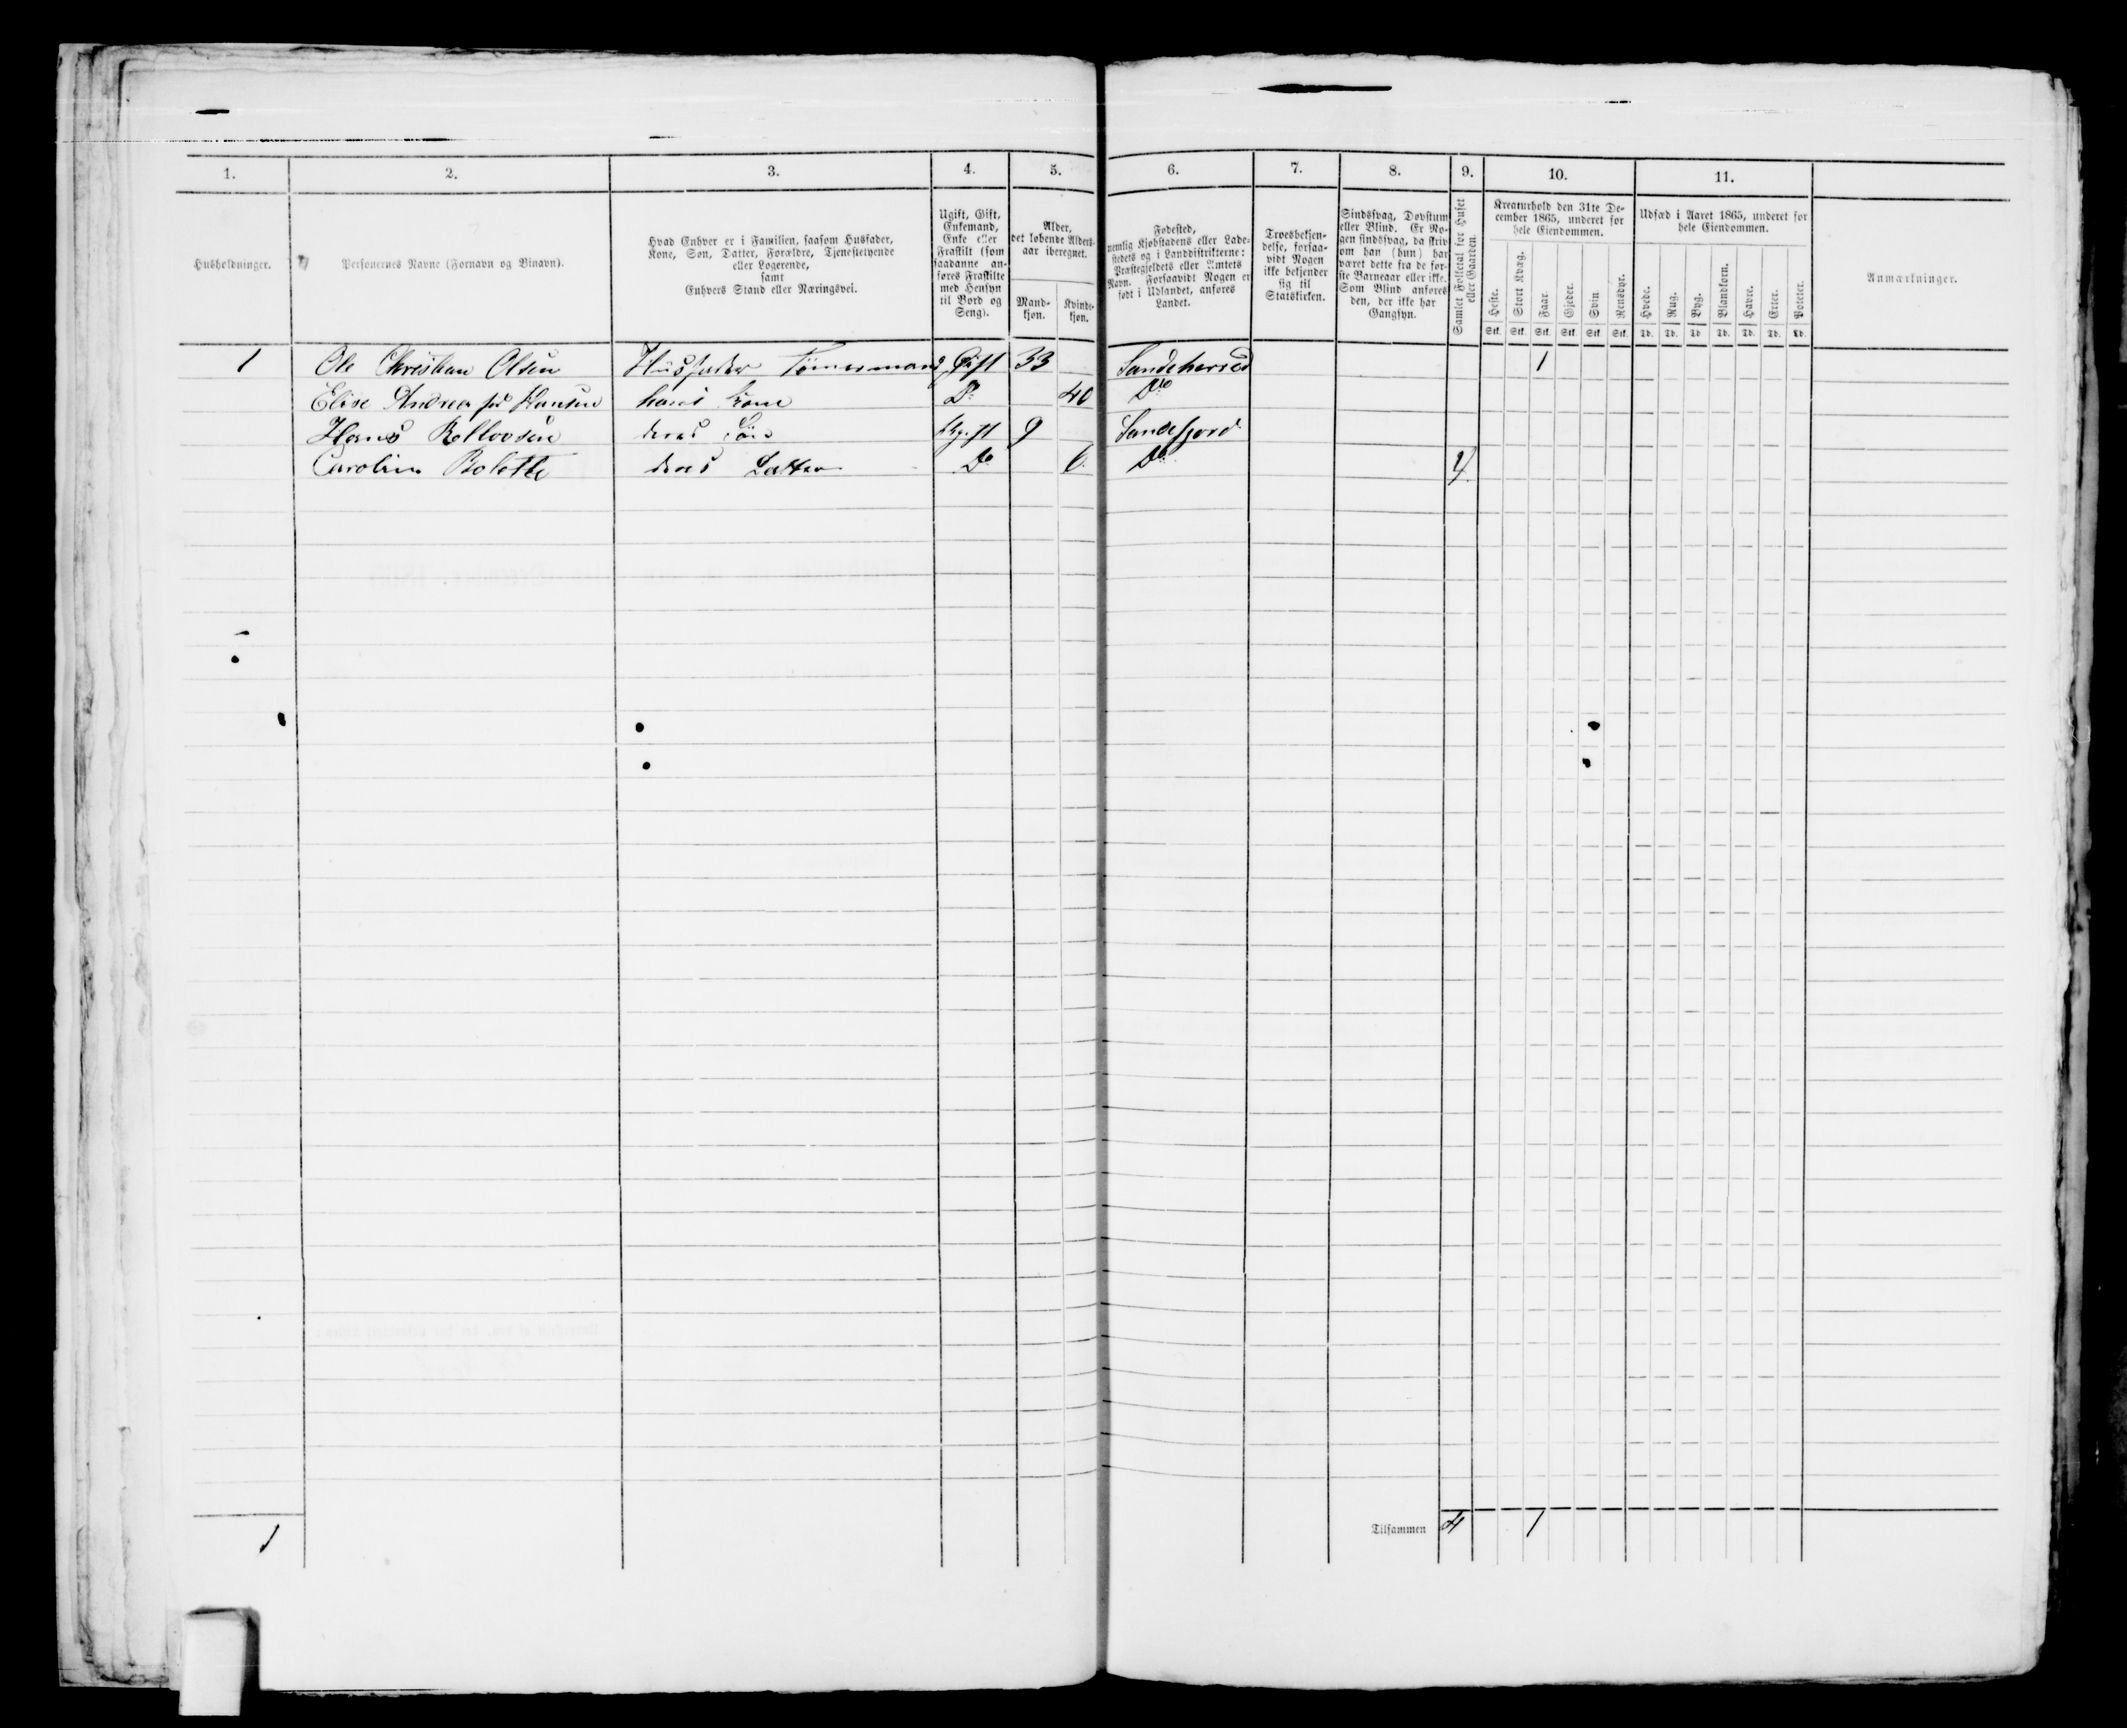 1. 2. 3. 4. 5. 6. 7. 8. 9. 10. 11.
Husholdninger.
Personernes Navne (Fornavn og Binavn).
Hvad Enhver er i Familien, saasom Husfader,
Kone, Søn, Datter, Forældre, Tjenestetyende
eller Logerende,
samt
Enhvers Stand eller Næringsvei.
Ugift, Gift,
Enkemand,
Enke eller
Fraskilt (som
saadanne an-
føres Fraskilte
med Hensyn
til Bord og
Seng).
Alder,
det løbende Alders-
aar iberegnet.
Mand-
kjøn.
Kvinde-
kjøn.
Fødested,
nemlig Kjøbstadens eller Lade-
stedets og i Landdistrikterne:
Præstegjeldets eller Amtets
Navn. Forsaavidt Nogen er
født i Udlandet, anføres
Landet.
Troesbekjen-
delse, forsaa-
vidt Nogen
ikke bekjender
sig til
Statskirken.
Sindssvag, Døvstum
eller Blind. Er No-
gen sindssvag, da skriv
om han (hun) har
været dette fra de før-
ste Barneaar eller ikke.
Som Blind anføres
den, der ikke har
Gangsyn.
Samlet Folketal for Huset
eller Gaarden.
Kreaturhold den 31te De-
cember 1865, underet for
hele Eiendommen.
Heste. Stort Kvæg. Faar. Gjeder. Svin. Rensdyr.
Stk. Stk. Stk. Stk. Stk. Stk.
Udsæd i Aaret 1865, underet for
hele Eiendommen.
Hvede. Rug. Byg. Blandkorn. Havre. Erter. Poteter.
Td. Td. Td. Td. Td. Td. Td.
Anmærkninger.
1 Ole Christian Olsen Husfader Tømmermand Gift 33 Sandeherred 1
Elise Andrea Hansen hans Kone Do 40 Do
Hans deres Søn Ugift 9 Sandefjord
Caroline deres Datter Do 6 Do 4
1 Tilsammen 4 1